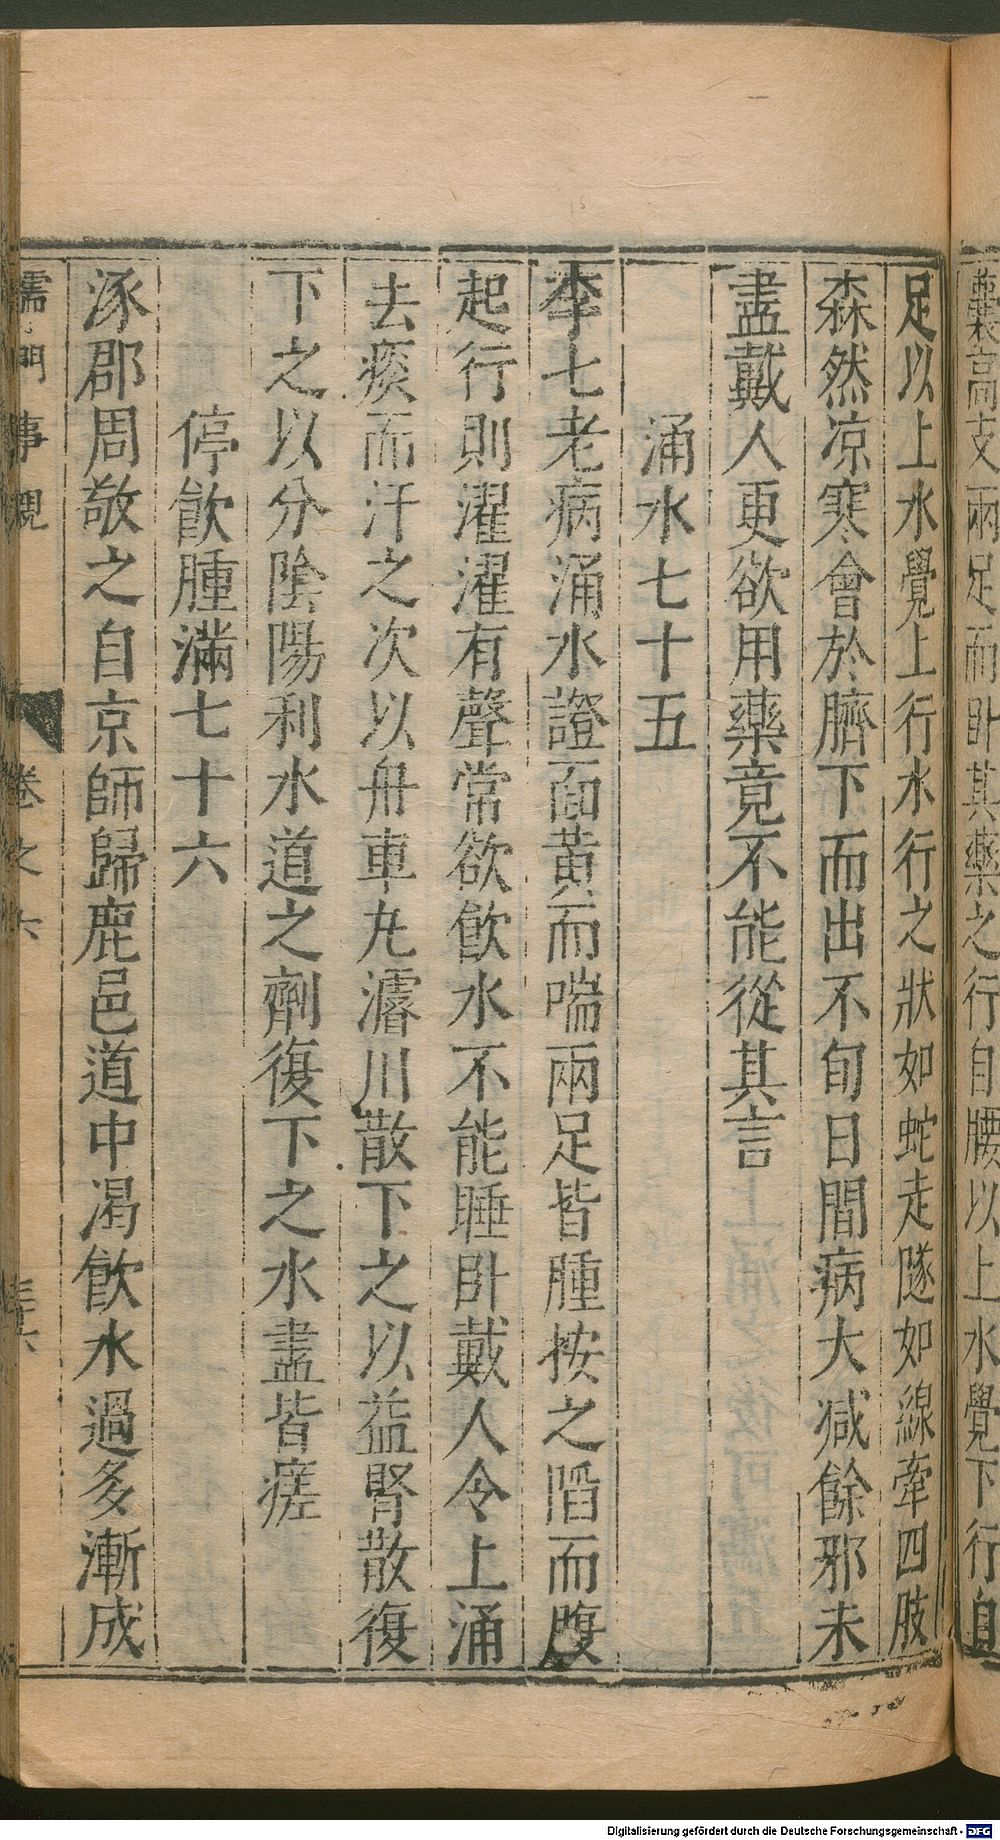 囊高支兩足而臥其藥之行自腰以上水覺下行自
足以上水覺上行水行之狀如蛇走隧如線牽四肢
森然凉寒會於臍下而出不旬日間病大减餘邪未
盡戴人更欲用藥竟不能從其言
涌水七十五
李七老病涌水證面黃而喘兩足皆腫按之陷而腹
起行則濯濯有聲常欲飮水不能睡臥戴人令上涌
去痰而汗之次以舟車丸濬川散下之以益腎散復
下之以分陰陽利水道之劑復下之水盡皆瘥
停飮腫滿七十六
涿郡周敬之自京師歸鹿邑道中渴飮水過多漸成
儒門事親 卷之六
Digitalisierung gefördert durch die Deutsche Forschungsgemeinschaft - DFG